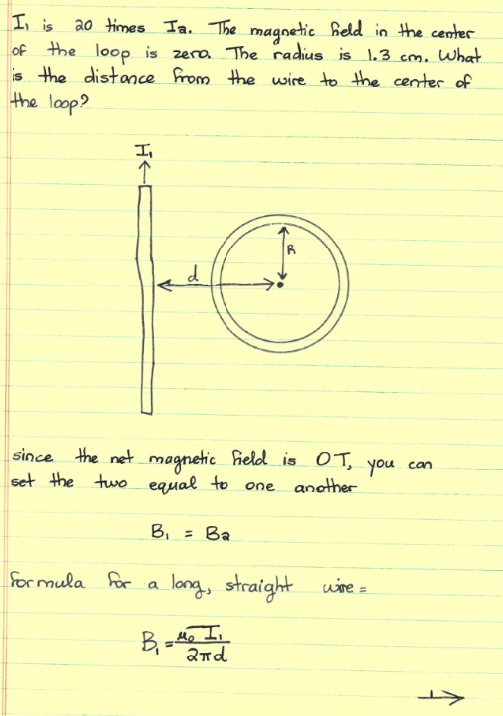 I₁ is 20 times I2. The magnetic field in the center
of the loop is zero. The radius is 1.3 cm. What
is the distance from the wire to the center of
the loop?
I₁
R
d
since the net magnetic field is 0T, you can
set the two equal to one another
B₁ = B2
formula for a long, straight wire =
B₁ = μ₀ I₁
2πd